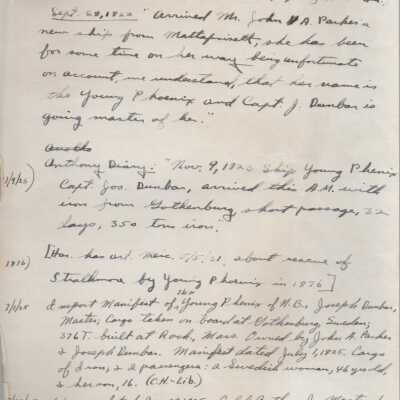 Sept. 28, 1822 "Arrived Mr. John A. Parker a
new ship from Mattapoisett, she has been
for some time on her way being unfortunate
on account, we understand, that her name is
the Young Phoenix and Capt. J. Dunbar is
going master of her."
Anthony Diary: "Nov. 9, 1823 Ship Young Phenix
Capt. Jos. Dunbar, arrived this A.M. with
iron from Gothenburg, short passage, 32
days, 350 tons iron."
[Has. has art. merc. 5/5/31. about rescue of
Strathmore by Young Phoenix in 1876]
Import Manifest of Young Phenix of N.B., Joseph Dunbar,
Master, Cargo taken on board at Gothenburg, Sweden;
376T. built at Roch., Mass. Owned by John A. Parker
& Joseph Dunbar. Manifest dated July 1, 1825. Cargo
of iron, & 2 passengers: a Swedish woman, 46 yrs old,
& her son, 16. (C.H-Lib.)